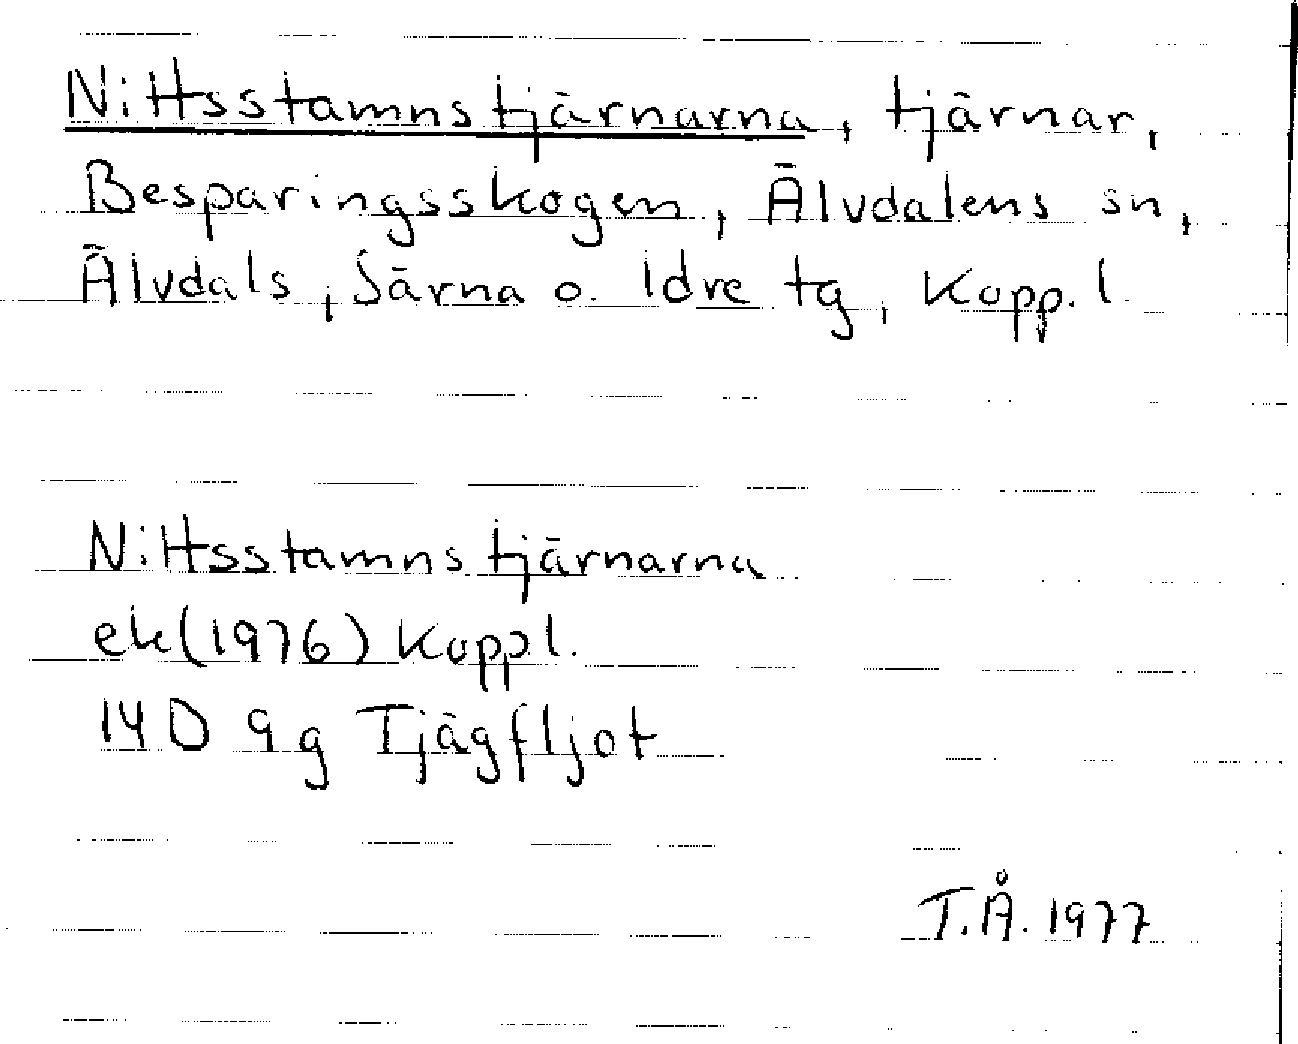 Nittsstamnstjärnarna, tjärnar,
Besparingsskogen, Älvdalens sn,
Älvdals, Särna o. Idre tg, Kopp. l.
Nittsstamnstjärnarna
ek (1976) Koppl.
14D 9g Tjägfljot
T.Å. 1977